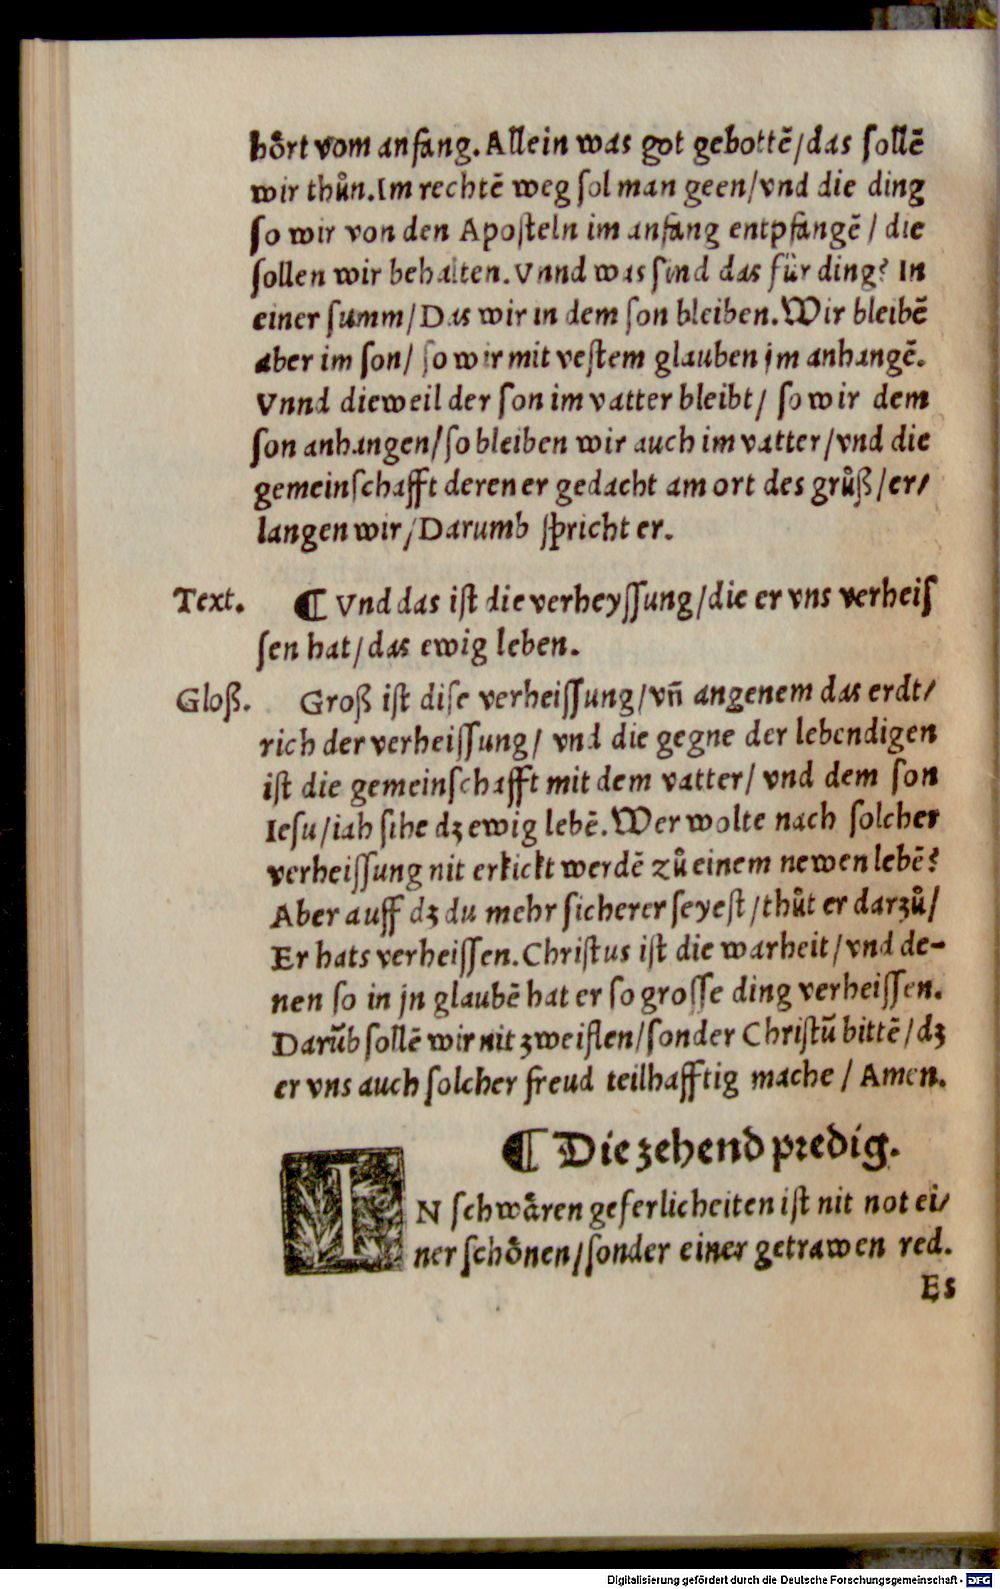 hoͤrt vom anfang. Allein was got gebottē/das sollē
wir thuͦn. Im rechtē weg sol man geen/vnd die ding
so wir von den Aposteln im anfang entpfangē / die
sollen wir behalten. Vnnd was sind das für ding? In
einer summ/Das wir in dem son bleiben. Wir bleibē
aber im son/ so wir mit vestem glauben jm anhangē.
Vnnd dieweil der son im vatter bleibt/ so wir dem
son anhangen/so bleiben wir auch im vatter/vnd die
gemeinschafft deren er gedacht am ort des gruͦß/er/
langen wir/Darumb spricht er.
Text. ¶ Vnd das ist die verheyssung/die er vns verheis
sen hat/das ewig leben.
Gloß. Groß ist dise verheissung/vn̄ angenem das erdt/
rich der verheissung/ vnd die gegne der lebendigen
ist die gemeinschafft mit dem vatter/ vnd dem son
Iesu/iah sihe dz ewig lebē. Wer wolte nach solcher
verheissung nit erkickt werdē zuͦ einem newen lebē?
Aber auff dz du mehr sicherer seyest/thuͦt er darzuͦ/
Er hats verheissen. Christus ist die warheit/vnd de-
nen so in jn glaubē hat er so grosse ding verheissen.
Darūb sollē wir nit zweiflen/sonder Christū bittē/dz
er vns auch solcher freud teilhafftig mache / Amen.
¶ Die zehend predig.
IN schwaͤren geferlicheiten ist nit not ei/
ner schoͤnen/sonder einer getrawen red.
Es
Digitalisierung gefördert durch die Deutsche Forschungsgemeinschaft - DFG